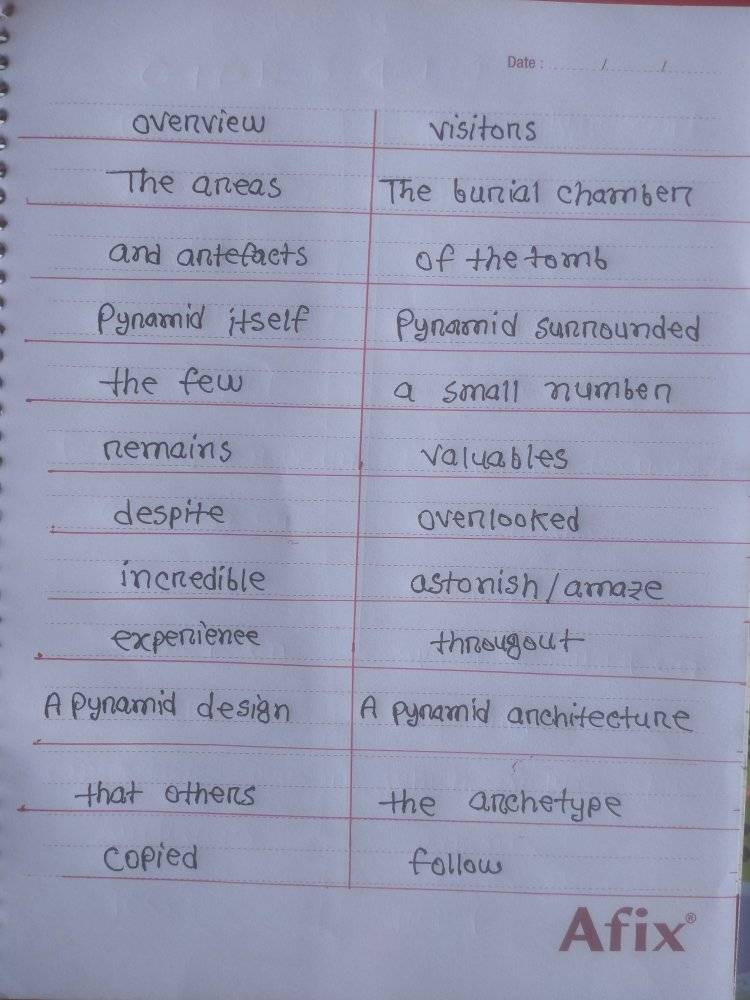 Date : / /
overview visitors
The areas The burial chamber
and artefacts of the tomb
Pyramid itself Pyramid surrounded
the few a small number
remains valuables
despite overlooked
incredible astonish/amaze
experience througout
A pyramid design A pyramid architecture
that others the archetype
copied follow
Afix®